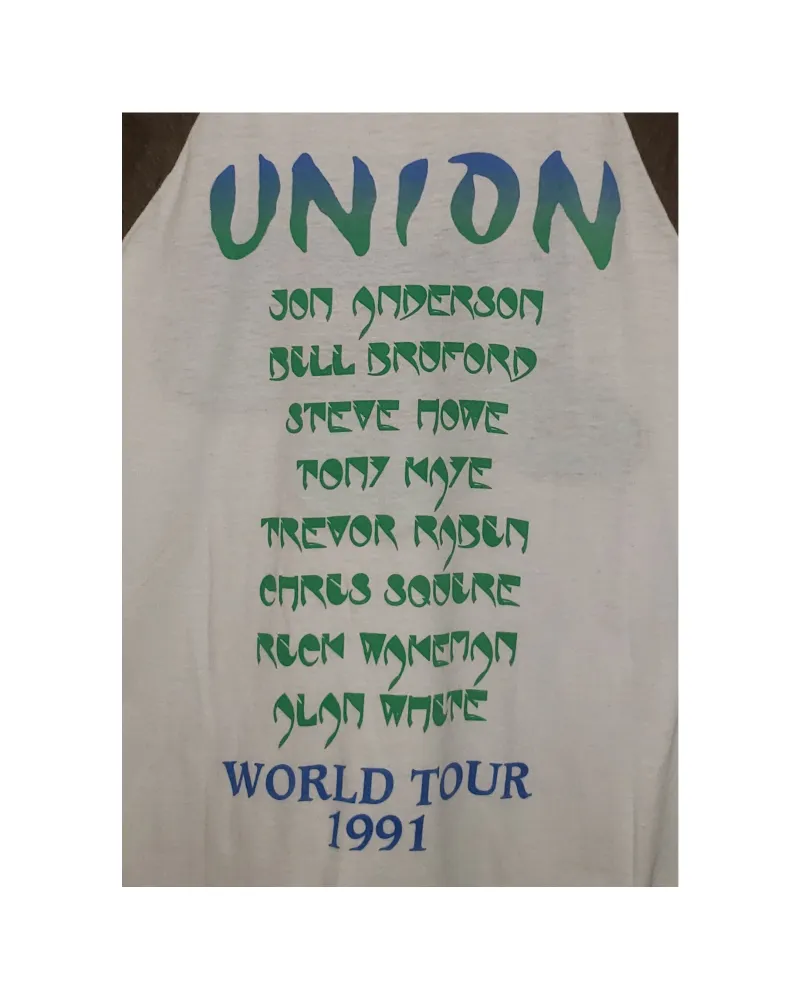 UNION
JON ANDERSON
BILL BRUFORD
STEVE HOWE
TONY KAYE
TREVOR RABIN
CHRIS SQUIRE
RICK WAKEMAN
ALAN WHITE
WORLD TOUR
1991